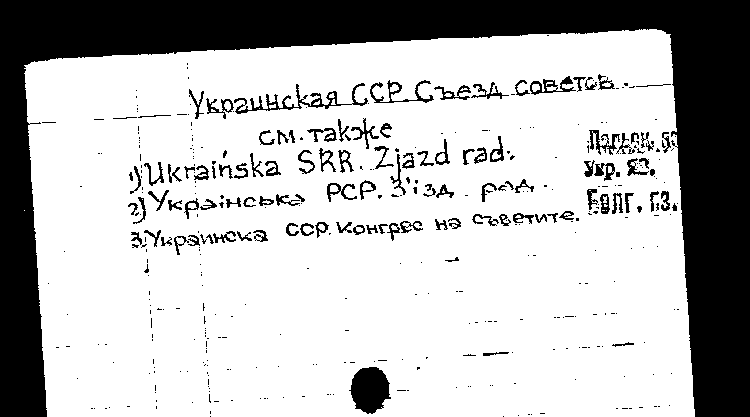 Украинская ССР. Съезд советов.
см. также
1) Ukraińska SRR. Zjazd rad.
2) Українська РСР. З'їзд рад. Укр. яз.
3) Украинска ССР. Конгрес на съветите. Болг. яз.